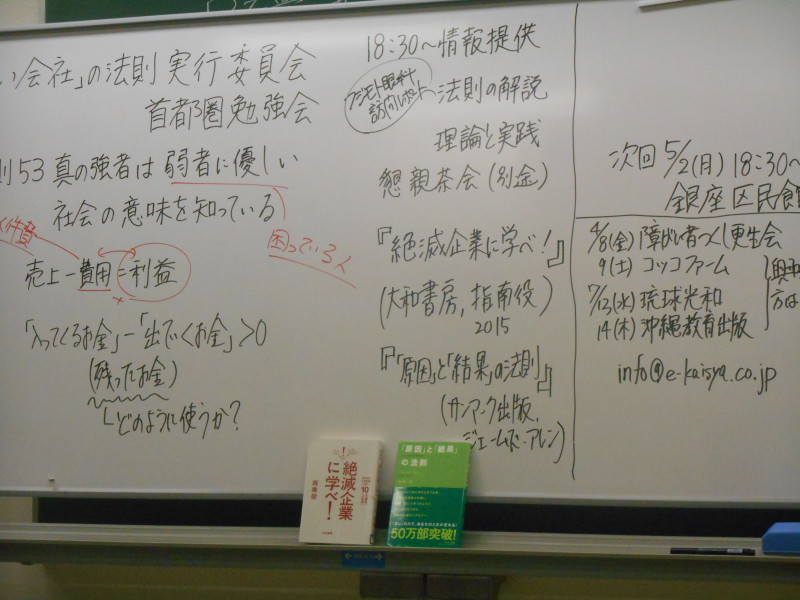 い会社」の法則 実行委員会
首都圏勉強会
則53 真の強者は弱者に優しい
社会の意味を知っている
件費
困っている人
売上－費用＝利益
「入ってくるお金」－「出ていくお金」＞0
(残ったお金)
どのように使うか？
18:30～情報提供
フジモト眼科
訪問レポート
法則の解説
理論と実践
懇親茶会(別金)
『絶滅企業に学べ！』
(大和書房, 指南役)
2015
『「原因」と「結果」の法則』
(サンマーク出版,
ジェームズ・アレン)
次回 5/2(月) 18:30～
銀座区民館
4/8(金) 障がい者つくし更生会
9(土) コッコファーム
7/13(水) 琉球光和
14(木) 沖縄教育出版
方は
info@e-kaisya.co.jp
絶滅企業に学べ！
指南役
「原因」と「結果」の法則
50万部突破！